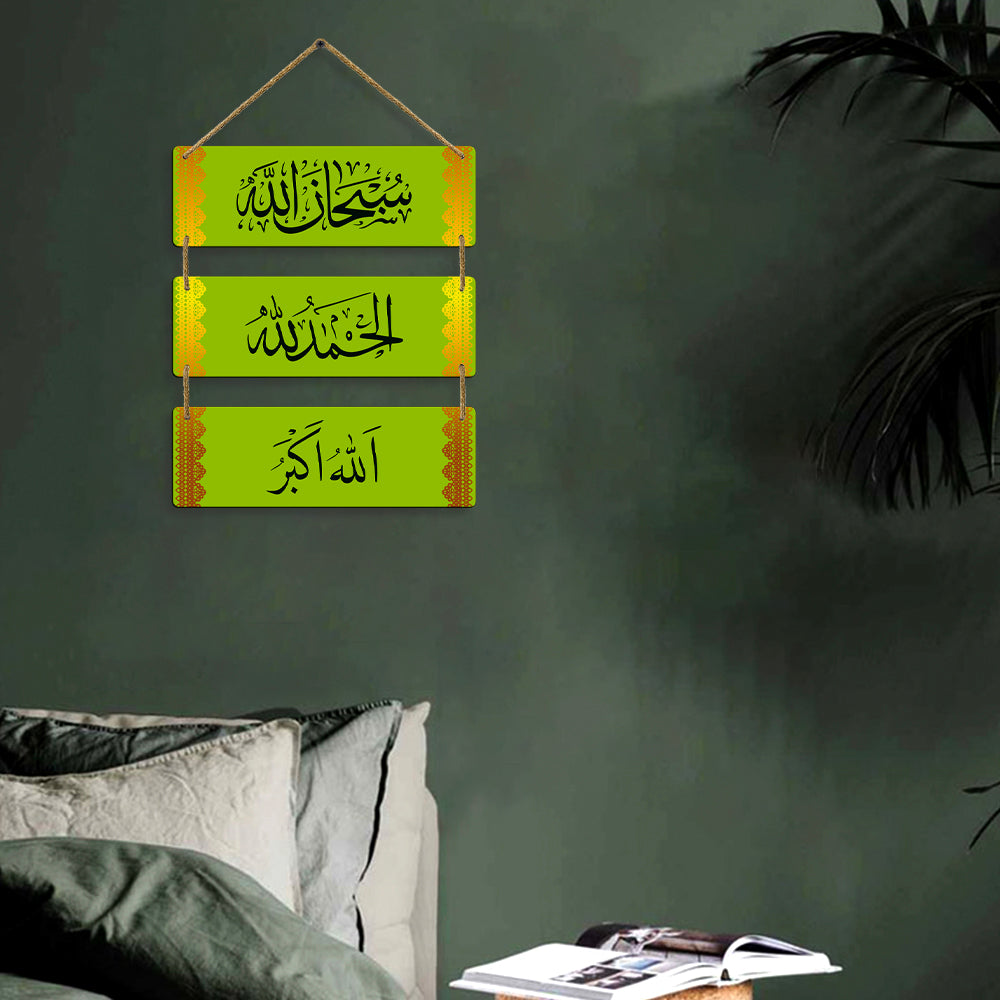 سُبْحَانَ اللّٰه
الحَمْدُ لِلّٰهِ
اَللّٰهُ اَكْبَرُ